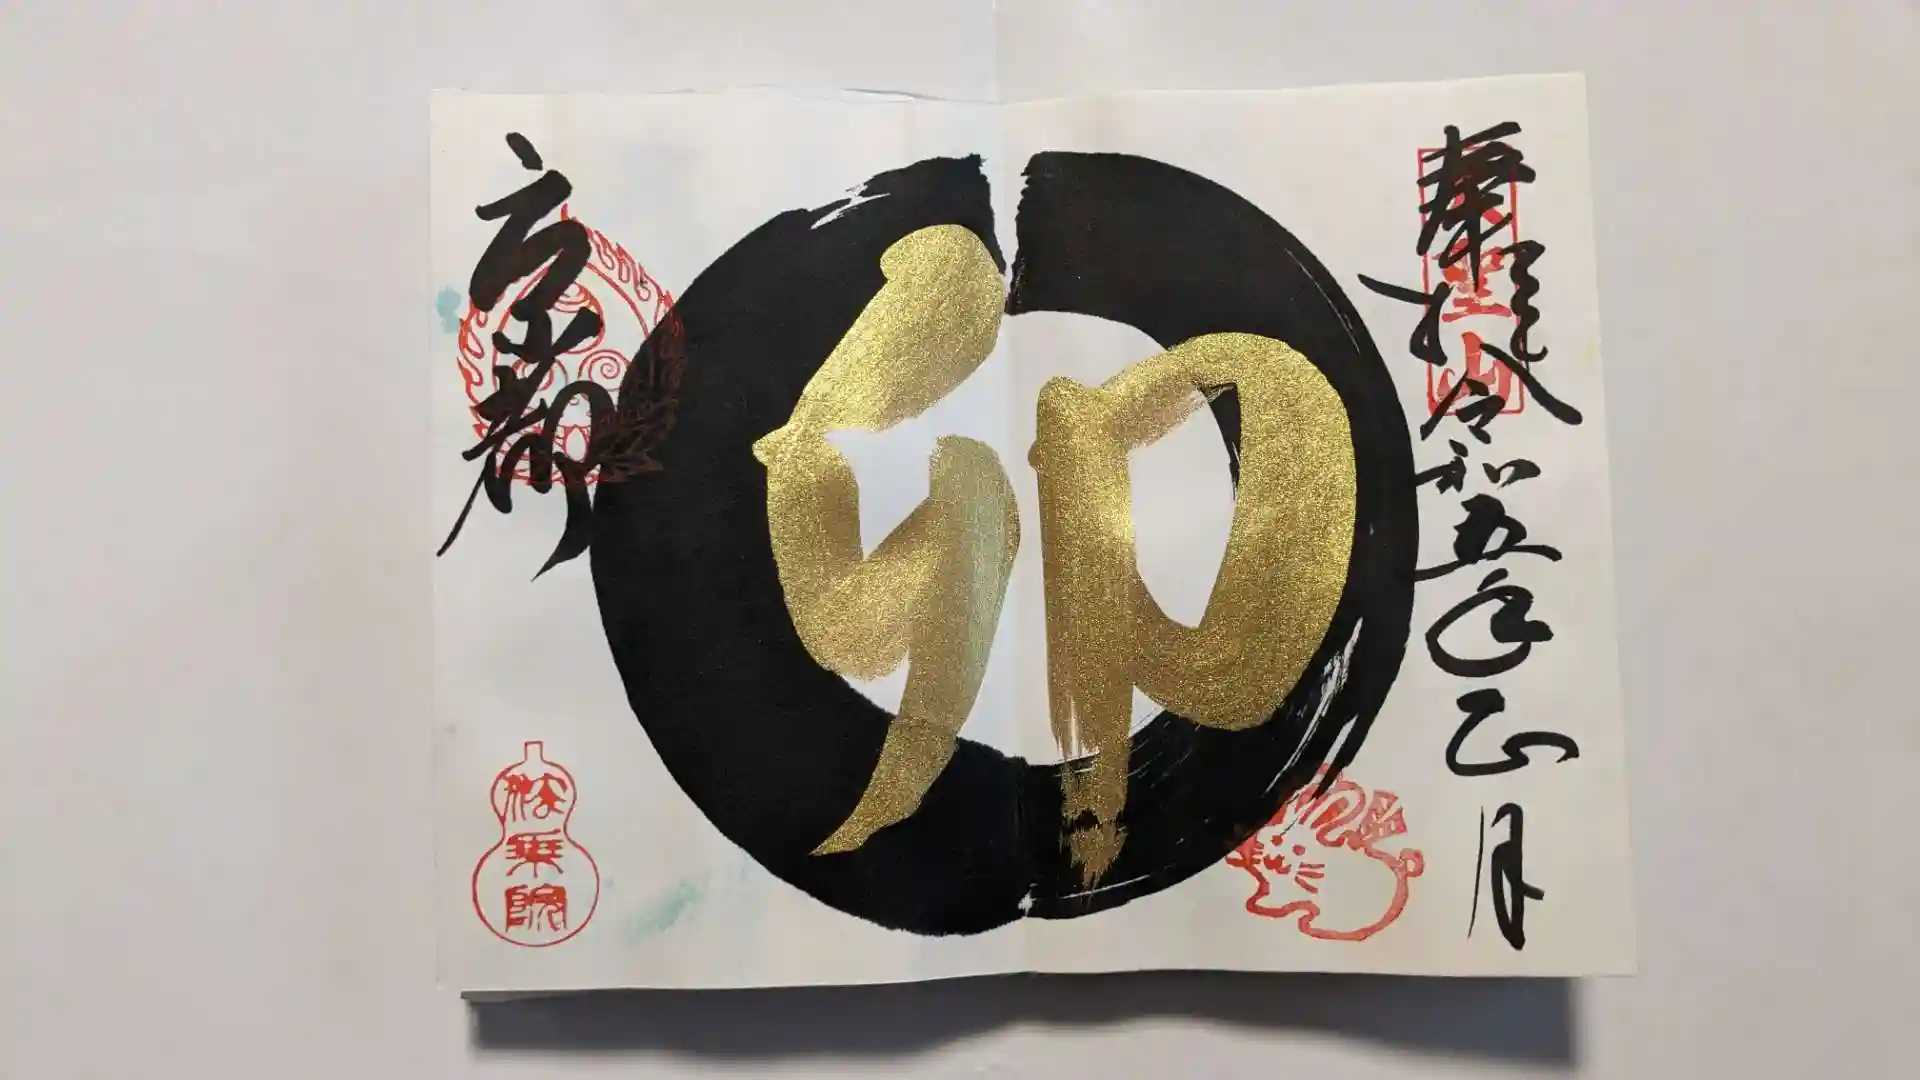 奉拝
令和五年正月
卯
京都
乗院